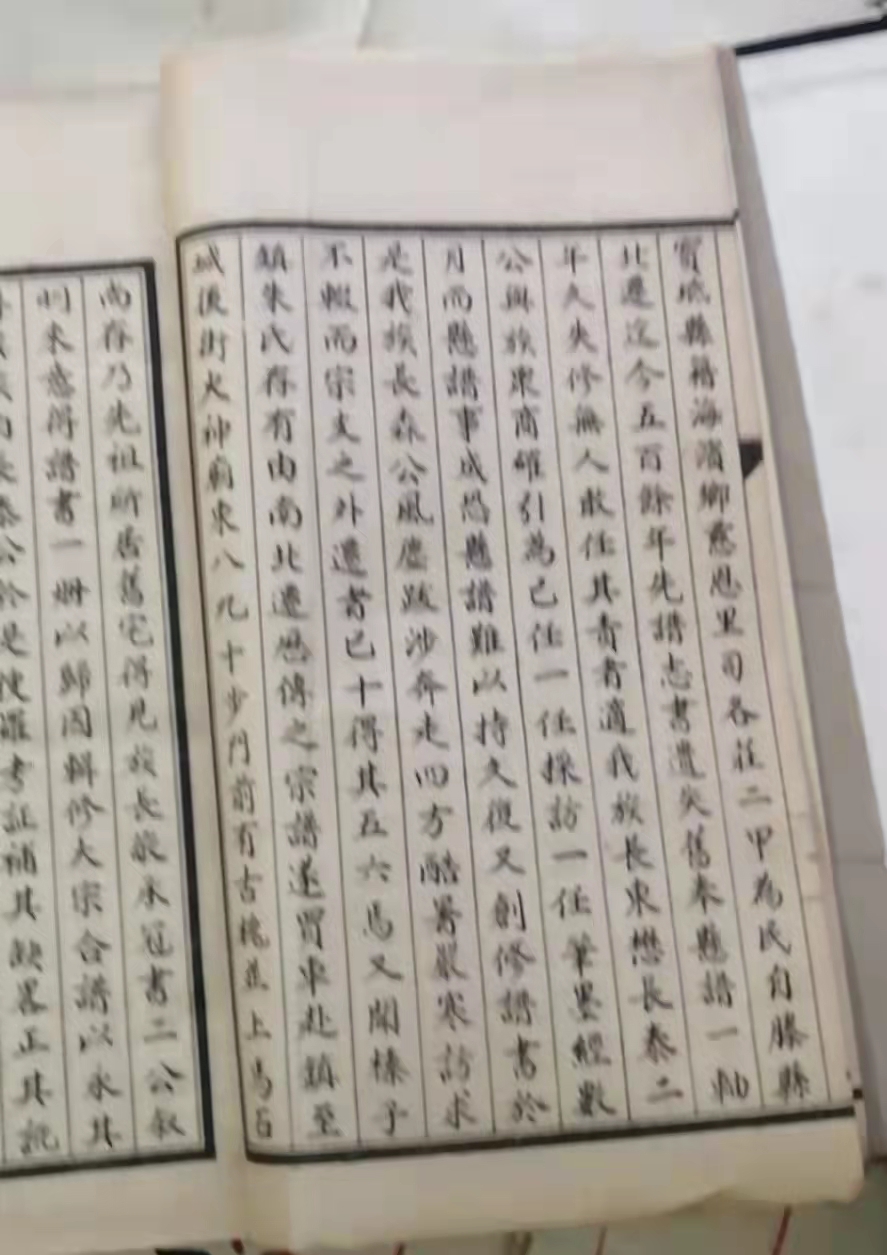 寳坻縣籍海濱鄉慈恩里司各莊二甲為民自滕縣
北遷迄今五百餘年先譜志書遺失舊奉懸譜一軸
年久失修無人敢任其責者適我族長東懋長泰二
公與族眾商確引為己任一任採訪一任筆墨經數
月而懸譜事成恐懸譜難以持久復又創修譜書於
是我族長森公風塵跋涉奔走四方酷暑嚴寒訪求
不輟而宗支之外遷者已十得其五六焉又聞榛子
鎮朱氏存有由南北遷歷傳之宗譜遂買車赴鎮至
城後街火神廟東八九十步門前有古槐並上馬石
尚存乃先祖所居舊宅得見族長殿永冠書二公叙
明來意得譜書一册以歸因輯修大宗合譜以永其
公於是使耀考証補其缺畧正其訛